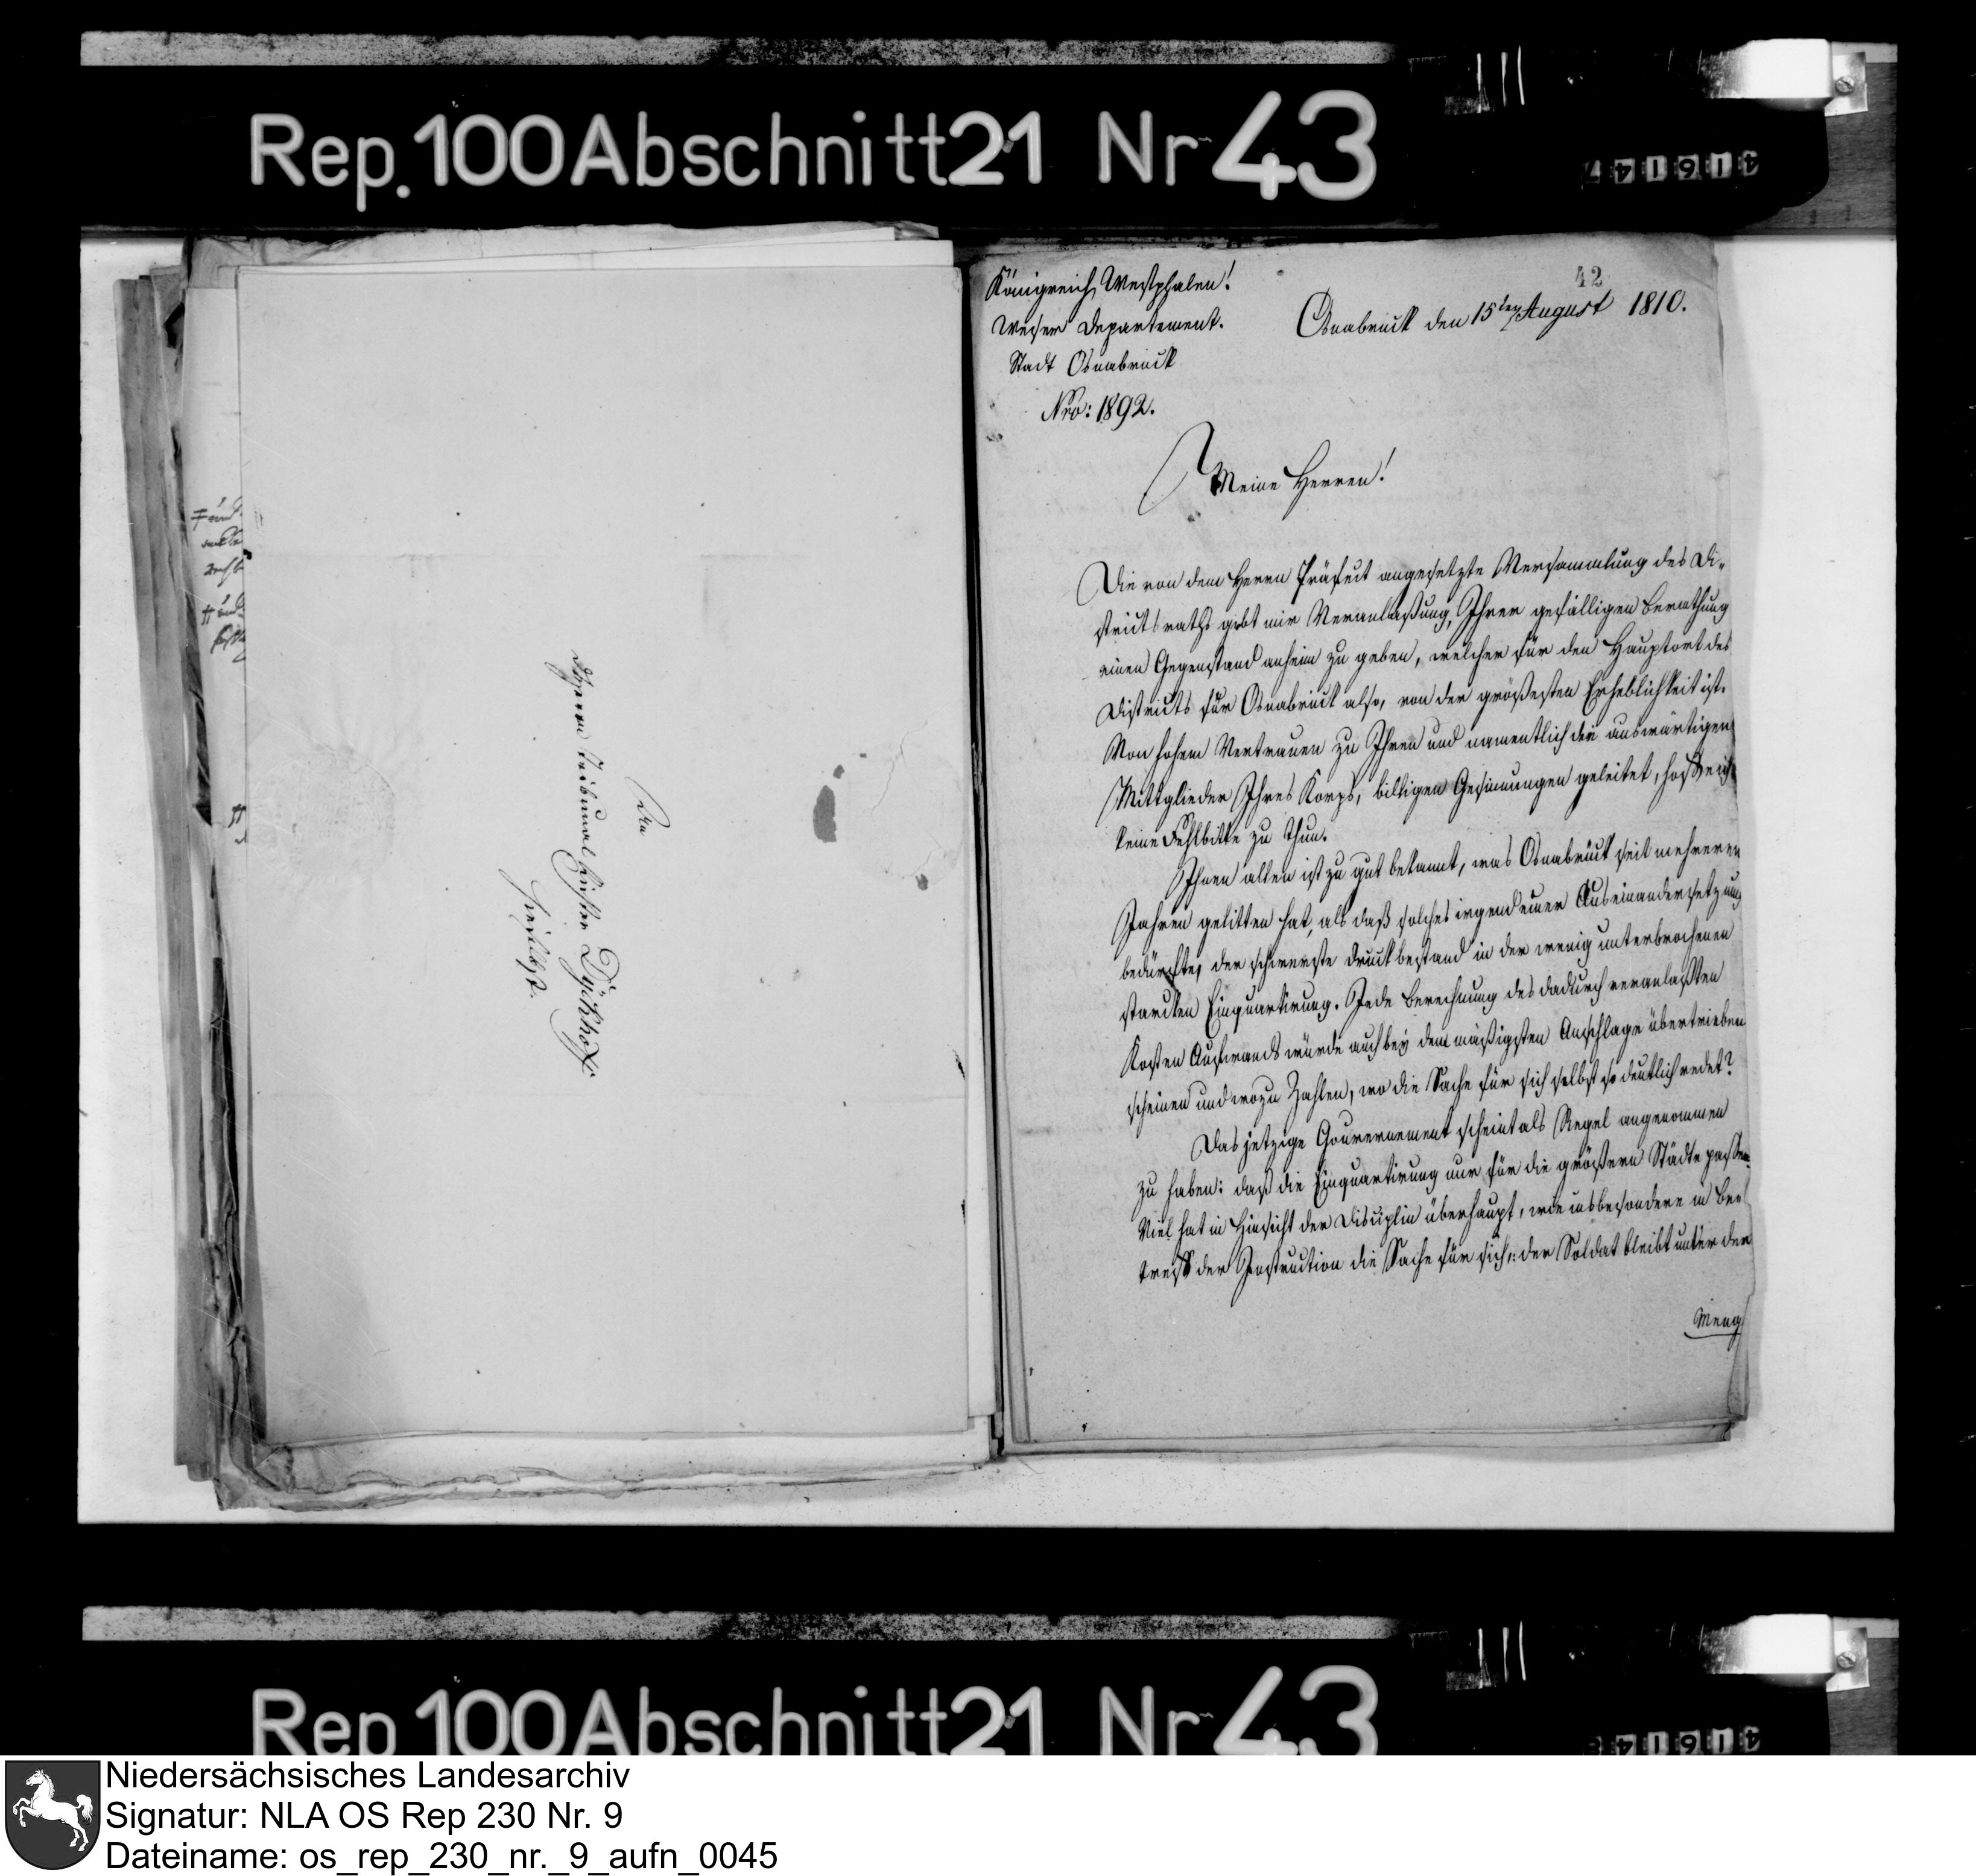 Rep.100Abschnitt21 Nr 43
An
Herrn Tribunal Richter Dyckhoff
hieselbst.
42
Königreich Westphalen!
Weser Departement.
Stadt Osnabrück
Nro: 1892.
Osnabrück den 15ten August 1810.
Meine Herren!
Die von dem Herrn Präfect angesetzte Versammlung des Di-
strictsraths gibt mir Veranlaßung, Ihrer gefälligen Berathung
einen Gegenstand anheim zu geben, welcher für den Hauptort des
Districts für Osnabrück also, von der größesten Erheblichkeit ist.
Von hohem Vertrauen zu Ihren und namentlich der auswärtigen
Mittglieder Ihres Korps, billigen Gesinnungen geleitet, hoffe ich
keine Fehlbitte zu thun.
Ihnen allen ist zu gut bekannt, was Osnabrück seit mehreren
Jahren gelitten hat, als daß solches irgend einer Auseinandersetzung
bedürfte, der schwerste Druck bestand in der wenig unterbrochenen
starcken Einquartirung. Jede Berechnung des dadurch veranlaßten
Kosten Aufwands würde auch bey dem mäßigsten Anschlage übertrieben
scheinen und wozu Zahlen, wo die Sache für sich selbst so deutlich redet?
Das jetzige Gouvernement scheint als Regel angenommen
zu haben: daß die Einquartirung nur für die größern Städte passe.
Viel hat in Hinsicht der Disciplin überhaupt, wie insbesondere in Be-
treff der Instruction die Sache für sich: der Soldat bleibt unter der
Meng
Rep 100Abschnitt21 Nr 43
Niedersächsisches Landesarchiv
Signatur: NLA OS Rep 230 Nr. 9
Dateiname: os_rep_230_nr._9_aufn_0045